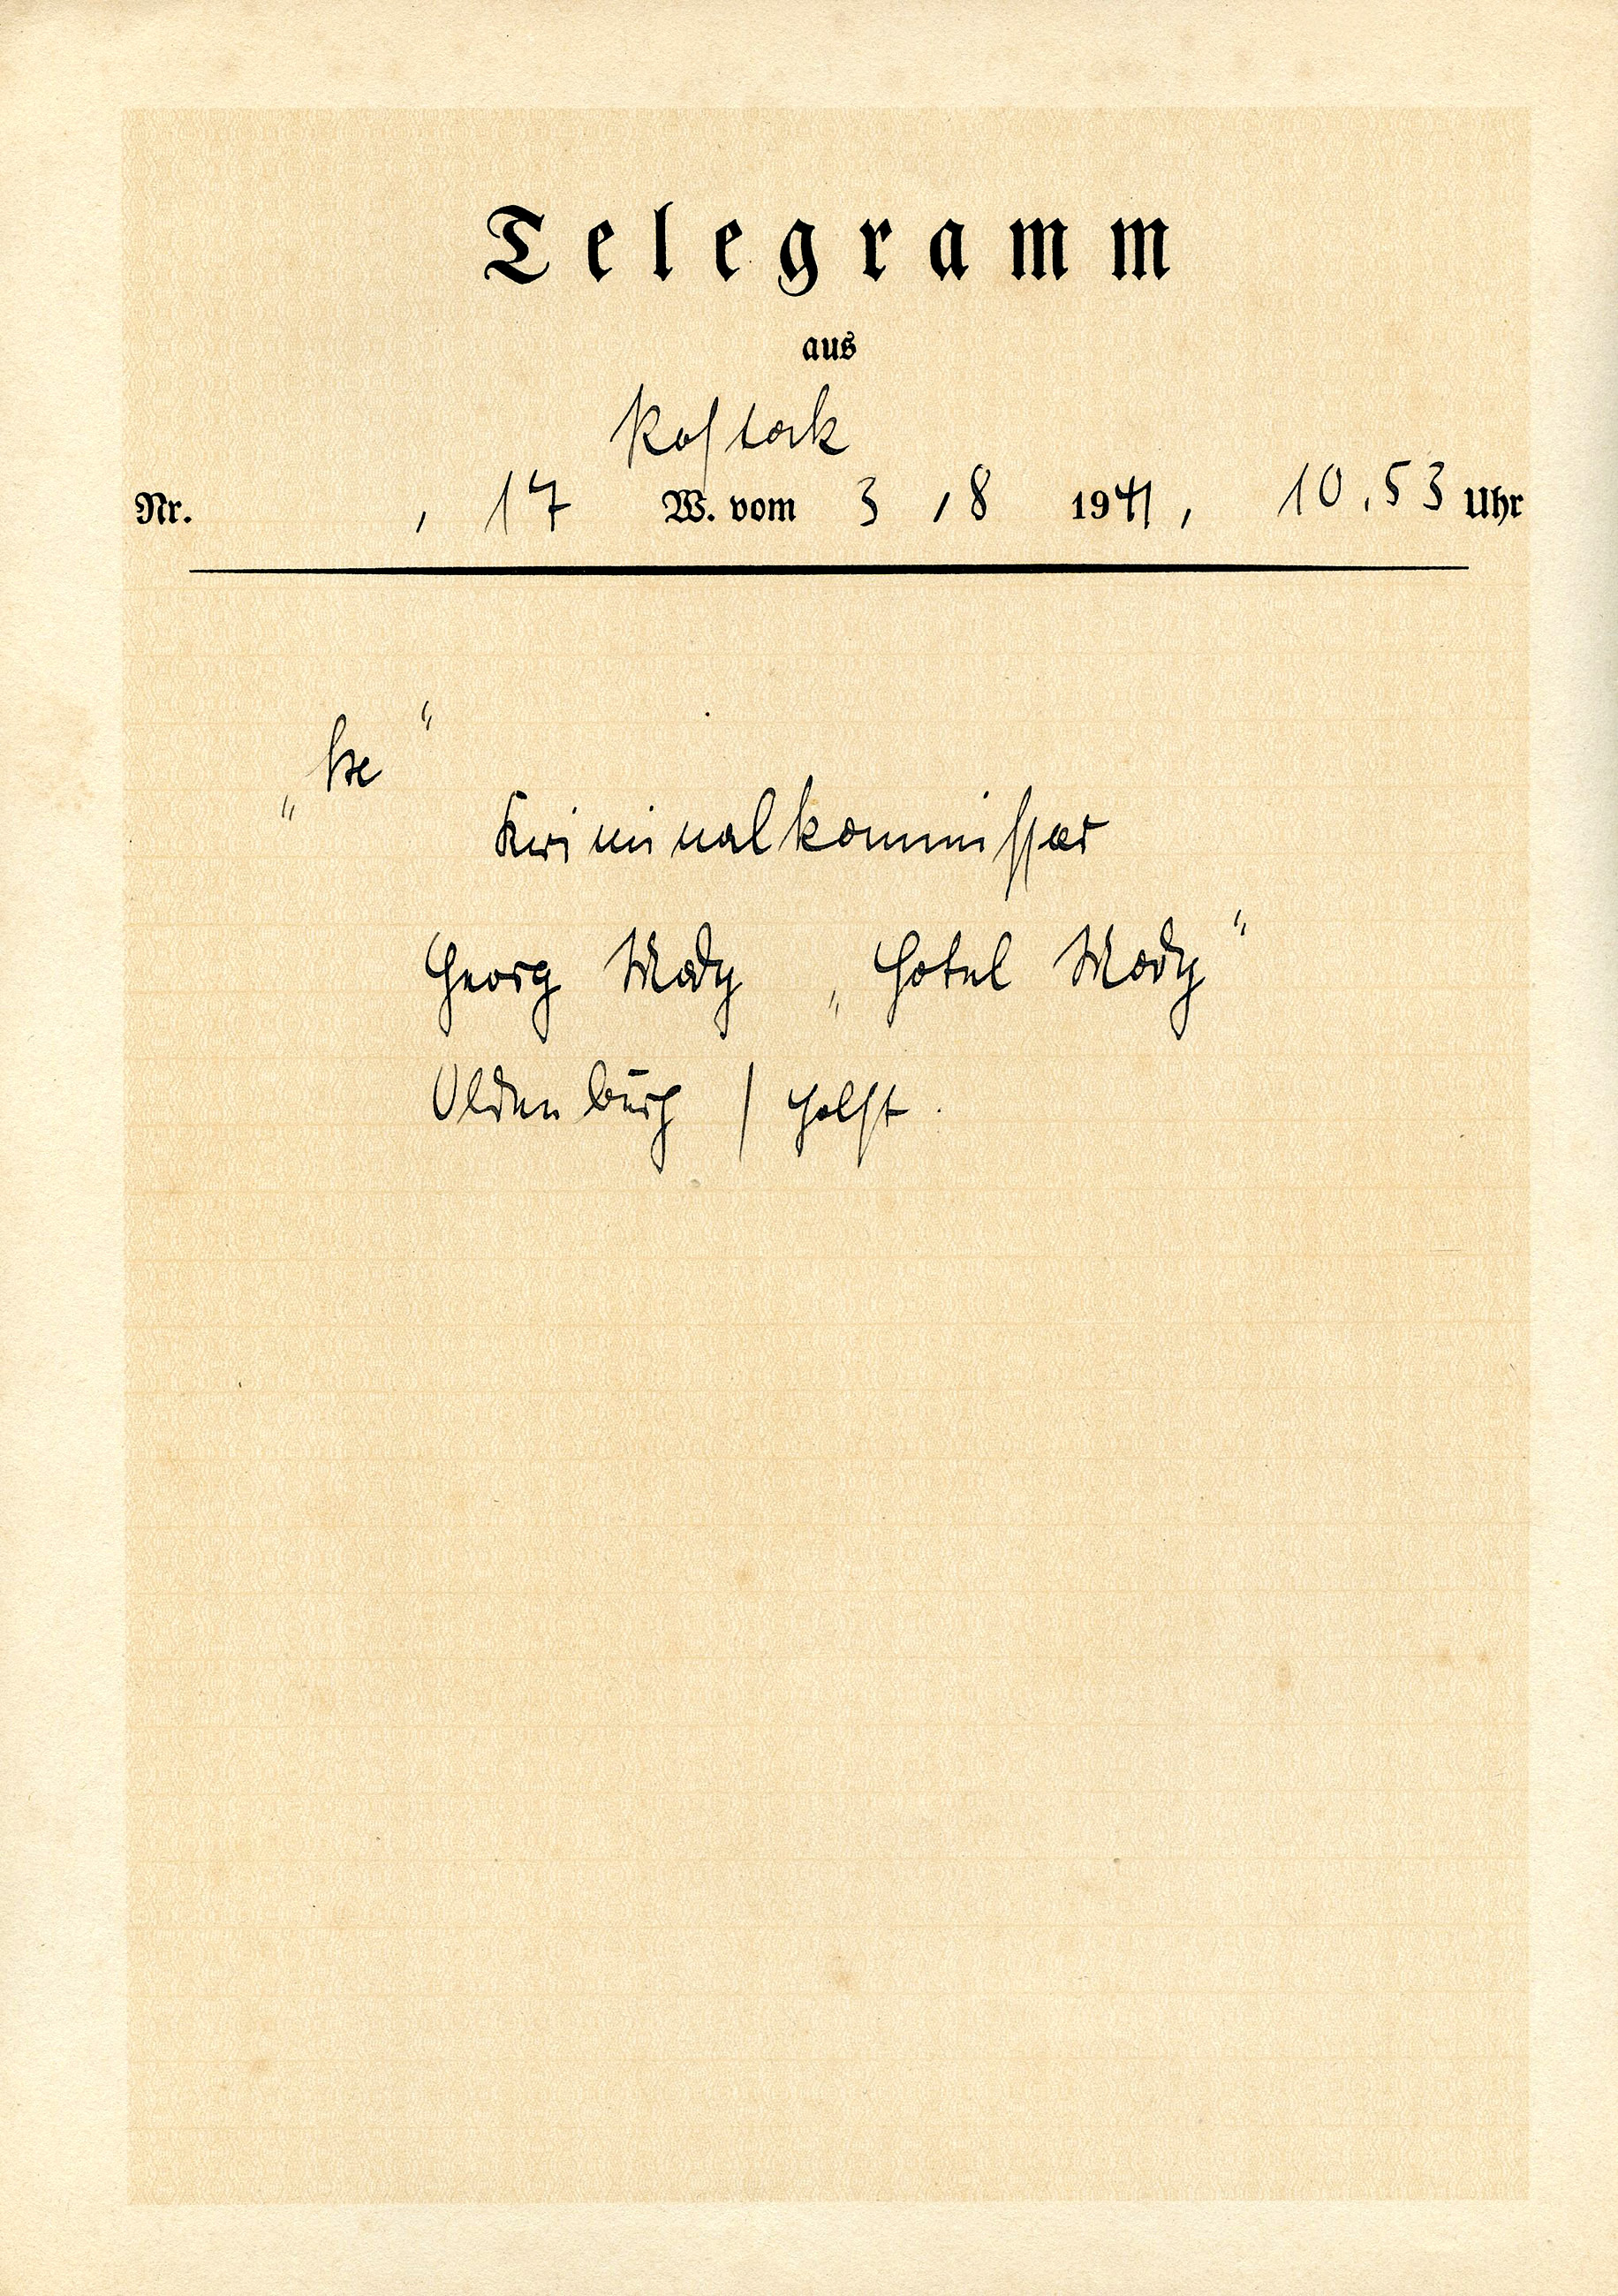 Telegramm
aus
Rostock
Nr. , 17 W. vom 3 / 8 1941, 10.53 Uhr
Kriminalkommissar
Georg Mody „Hotel Mody“
Oldenburg / Holst.